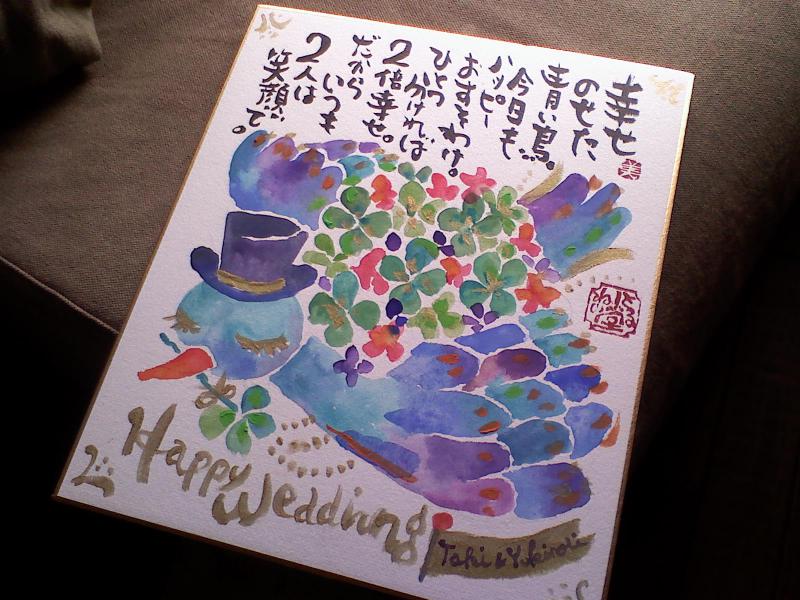 幸せ
のせた
青い鳥。
今日も
ハッピー
おすそわけ。
ひとつ
分ければ
2倍幸せ。
だから
いつも
2人は
笑顔で。
美
Happy
Wedding